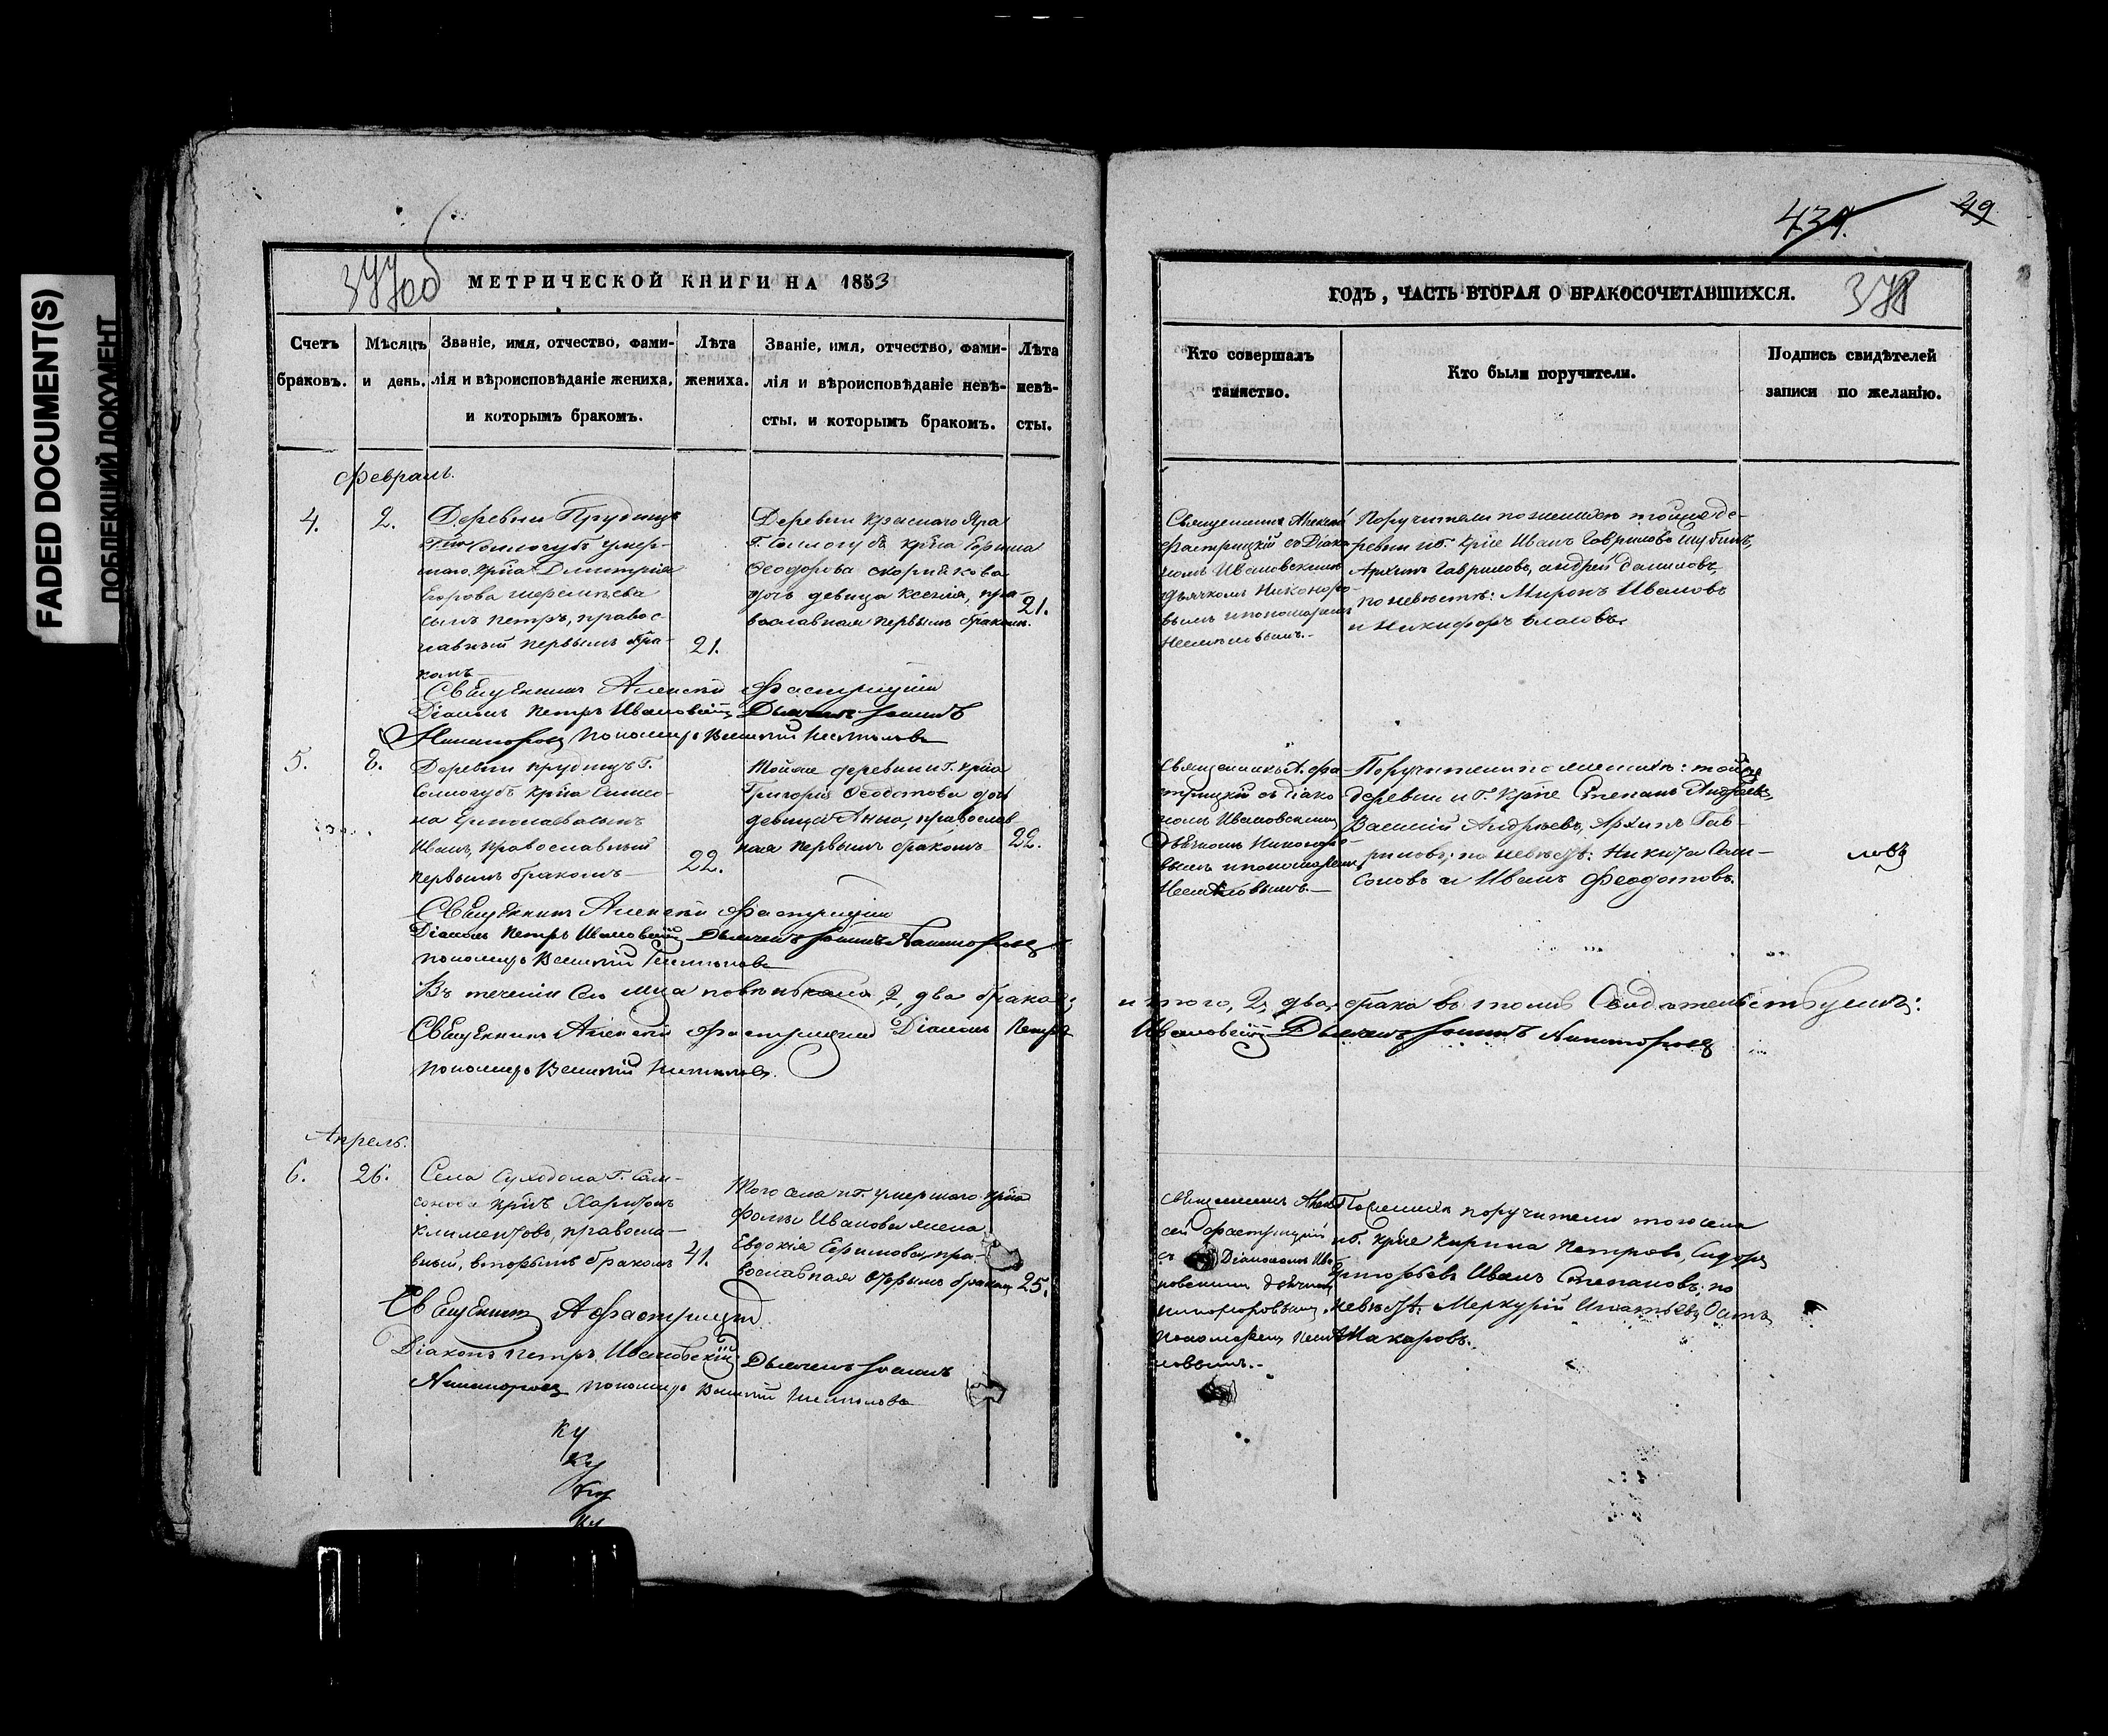 FADED DOCUMENT(S)
ПОБЛЕКШИЙ ДОКУМЕНТ
377об
МЕТРИЧЕСКОЙ КНИГИ НА 1853
Счетъ браковъ.
Мѣсяцъ и день.
Званіе, имя, отчество, фами-
лія и вѣроисповѣданіе жениха,
и которымъ бракомъ.
Лѣта
жениха.
Званіе, имя, отчество, фами-
лія и вѣроисповѣданіе невѣ-
сты, и которымъ бракомъ.
Лѣта
невѣ-
сты.
Февраль.
4.
2.
Деревни Прудищъ
Г. Соллогубъ умер-
шаго кр̃на Димитрія
Егорова
сынъ Петръ, правос-
лавный первымъ бра-
комъ
21.
Деревни Краснаго Яра
Г. Соллогубъ кр̃на
Ѳеодорова
дочь девица Ксенія, пра-
вославная первымъ бракомъ.
21.
Священникъ Алексей Фастрицкій
Діаконъ Петръ Ивановскій Дьячекъ Іоаннъ
Никаноровъ Пономарь Василій
5.
8.
Деревни Прудищъ Г.
Соллогубъ кр̃на Симео-
на сынъ
Иванъ, православный
первымъ бракомъ
22.
Тойже деревни и Г. кр̃на
Григорія Ѳеодотова дочь
девица Анна, православ
ная первымъ бракомъ
22.
Священникъ Алексей Фастрицкій
Діаконъ Петръ Ивановскій Дьячекъ Іоаннъ Никаноровъ
Пономарь Василій
Въ теченіи сего м̃ца повѣнчано 2, два брака:
Священникъ Алексей Фастрицкій Діаконъ Петръ
Пономарь Василій
Апрель.
6.
26.
Села Суходола Г. Сам-
сонова кр̃нъ Харитонъ
Климентовъ, правосла-
вный, вторымъ бракомъ
41.
Того села и Г. умершаго кр̃на
Фомы Иванова жена
Евдокія Ефимова, пра-
вославная вторымъ бракомъ
25.
Священникъ А Фастрицкій
Діаконъ Петръ Ивановскій Дьячекъ Іоаннъ
Никаноровъ Пономарь Василій
Ку
Ку
Ку
Ку
49
378
ГОДЪ, ЧАСТЬ ВТОРАЯ О БРАКОСОЧЕТАВШИХСЯ.
Кто совершалъ
таинство.
Кто были поручители.
Подпись свидѣтелей
записи по желанію.
Священникъ Алексей
Фастрицкій съ Діако
номъ Ивановскимъ
дьячкомъ Никаноро-
вымъ и пономаремъ
Поручители по женихѣ тойже де-
ревни и Г. кр̃не Иванъ Гавриловъ
Архипъ Гавриловъ, Андрей Даниловъ,
по невѣстѣ: Миронъ Ивановъ
и Никифоръ Власовъ.
Священникъ А. Фа
стрицкій съ Діако
номъ Ивановскимъ
Дьячкомъ Никаноро
вымъ и пономаремъ
Поручители по женихѣ: тойже
деревни и Г. кр̃не Степанъ Андреевъ,
Василій Андреевъ, Архипъ Гав-
риловъ; по невѣстѣ: Никита Сам-
соновъ и Иванъ Феодотовъ.
ловъ
итого, 2, два, брака въ томъ Свидѣтельствуемъ:
Ивановскій Дьячекъ Іоаннъ Никаноровъ
Священникъ Алек
сей Фастрицкій
съ Діакономъ Ива
новскимъ дьячкомъ
Никаноровымъ
пономаремъ
По женихѣ поручители того села
и Г. кр̃не Кирила Петровъ, Сидоръ
Григорьевъ Иванъ Степановъ; по
невѣстѣ: Меркурій Игнатьевъ Осипъ
Макаровъ.